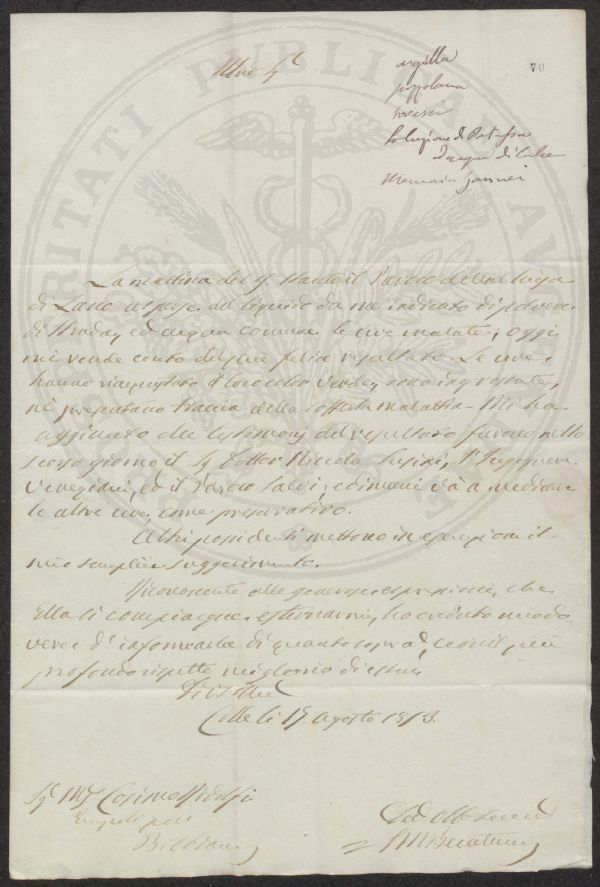 70
argilla
pozzolana
Soluzione di Potassa
ed acqua di Calce
Memoria
La mattina del 9 stante il Paroco della Chiesa
di Lano asperse del liquido da me indicato di polvere
di Strada, ed acqua comune le uve malate; oggi
mi rende conto del più felice resultato. Le uve
hanno riacquistato il loro color verde, sono ingrossate,
nè presentano traccia della sofferta malattia. Mi ha
aggiunto che testimonj del resultato furono nello
scorso giorno il Sig. Dottor Niccola, l'Ingegnere
ed il Paroco Salvi; e dimani và a medicare
le altre uve, come preservativo.
Altri possidenti mettono in esecuzione il
mio semplice suggerimento.
Riconoscente alle generose espressioni, che
Ella si compiacque esternarmi, ho creduto mio do
vere d'informarla di quanto sopra, e con il più
profondo rispetto mi glorio di essere
Di V. S. Ill.
Colle li 19 Agosto 1853.
Sig. Mse Cosimo Ridolfi
Bibbiani